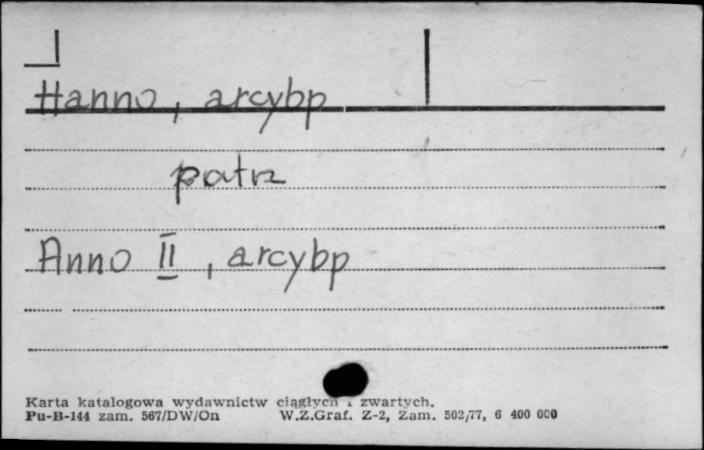 Hanno, arcybp
patrz
Anno II, arcybp
Karta katalogowa wydawnictw ciągłych i zwartych.
Pu-B-144 zam. 567/DW/On W.Z.Graf. Z-2, Zam. 502/77, 6 400 000